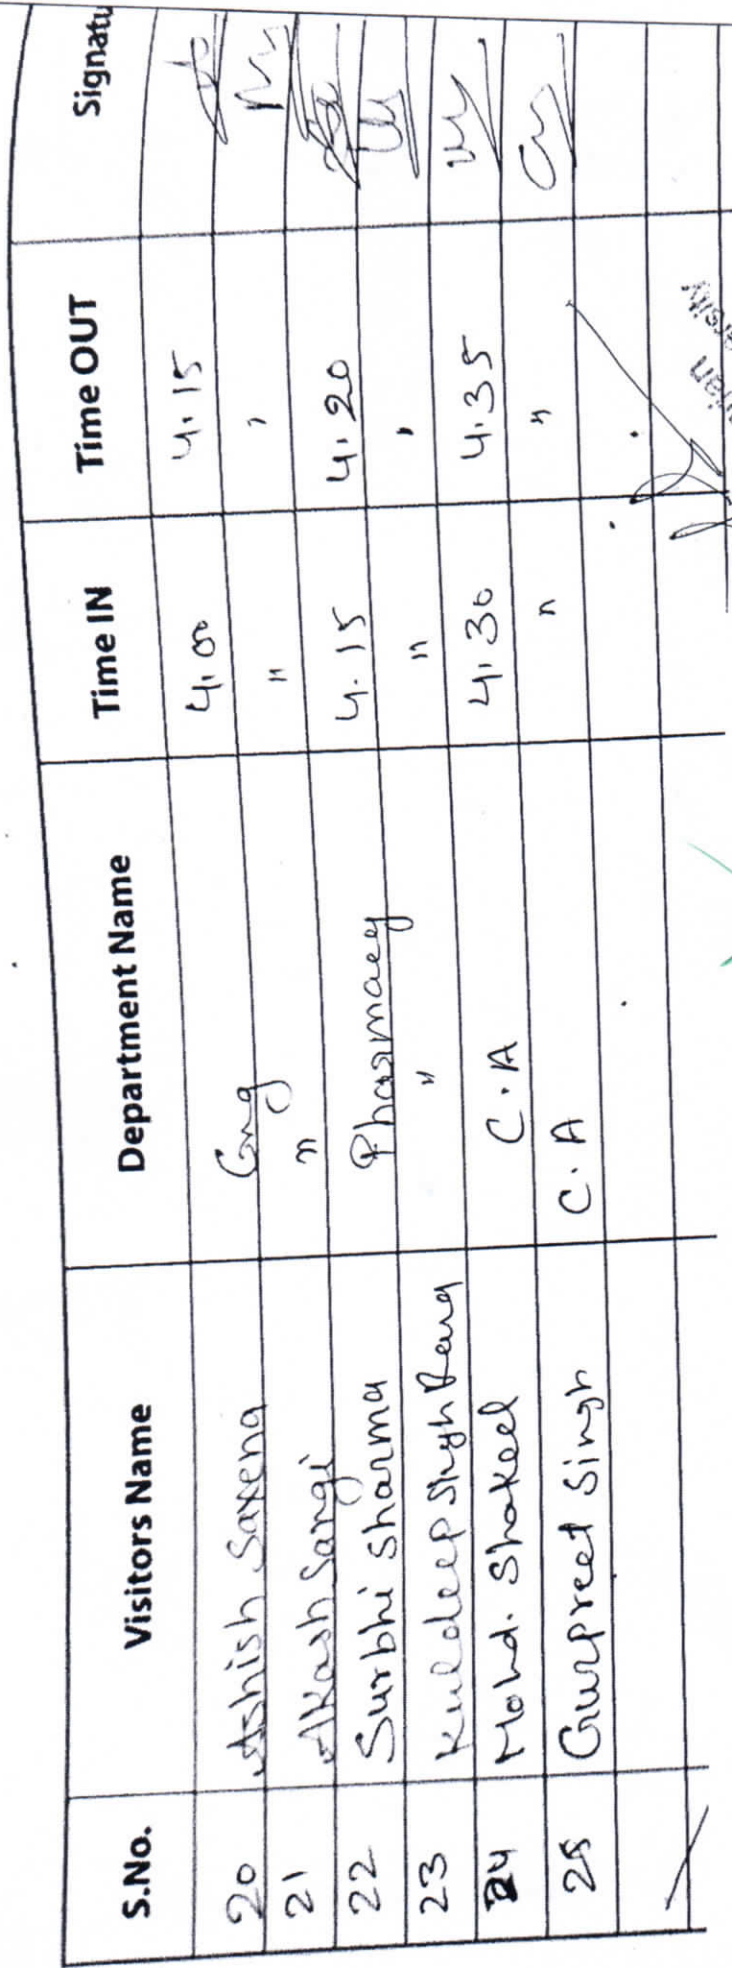 S.No. Visitors Name Department Name Time IN Time OUT Signatu
20 Ashish Saxena Eng 4.00 4.15
21 Akash Sangi " " "
22 Surbhi Sharma Pharmacy 4.15 4.20
23 Kuldeep Singh " " "
24 Mohd. Shakeel C.A 4.30 4.35
25 Gurpreet Singh C.A " "